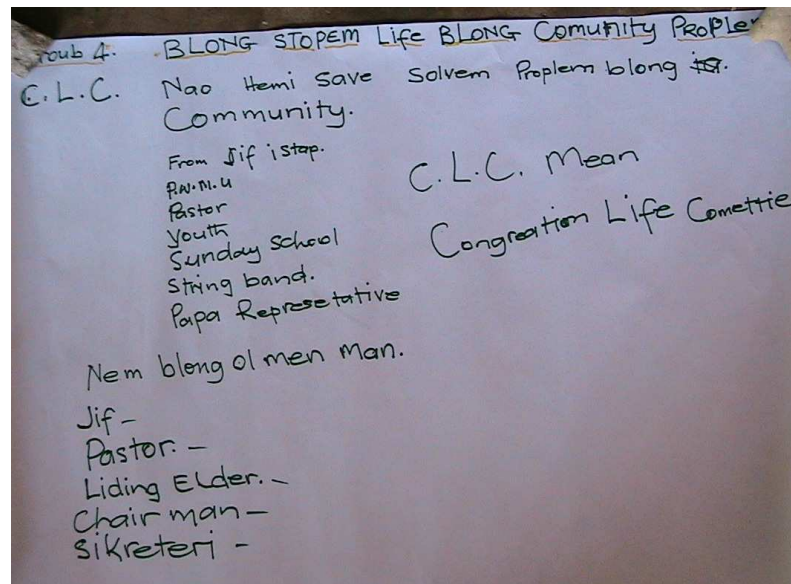 roub 4. BLONG STOPEM Life BLONG Comunity PROPLem
C.L.C. Nao Hemi save solvem Proplem blong
Community.
From Jif istap.
P.W.M.U
Pastor
Youth
Sunday School
String band.
Papa Represetative
C.L.C. Mean
Congreation Life Comettie
Nem blong ol men man.
Jif -
Pastor. -
Liding Elder. -
Chair man -
Sikreteri -